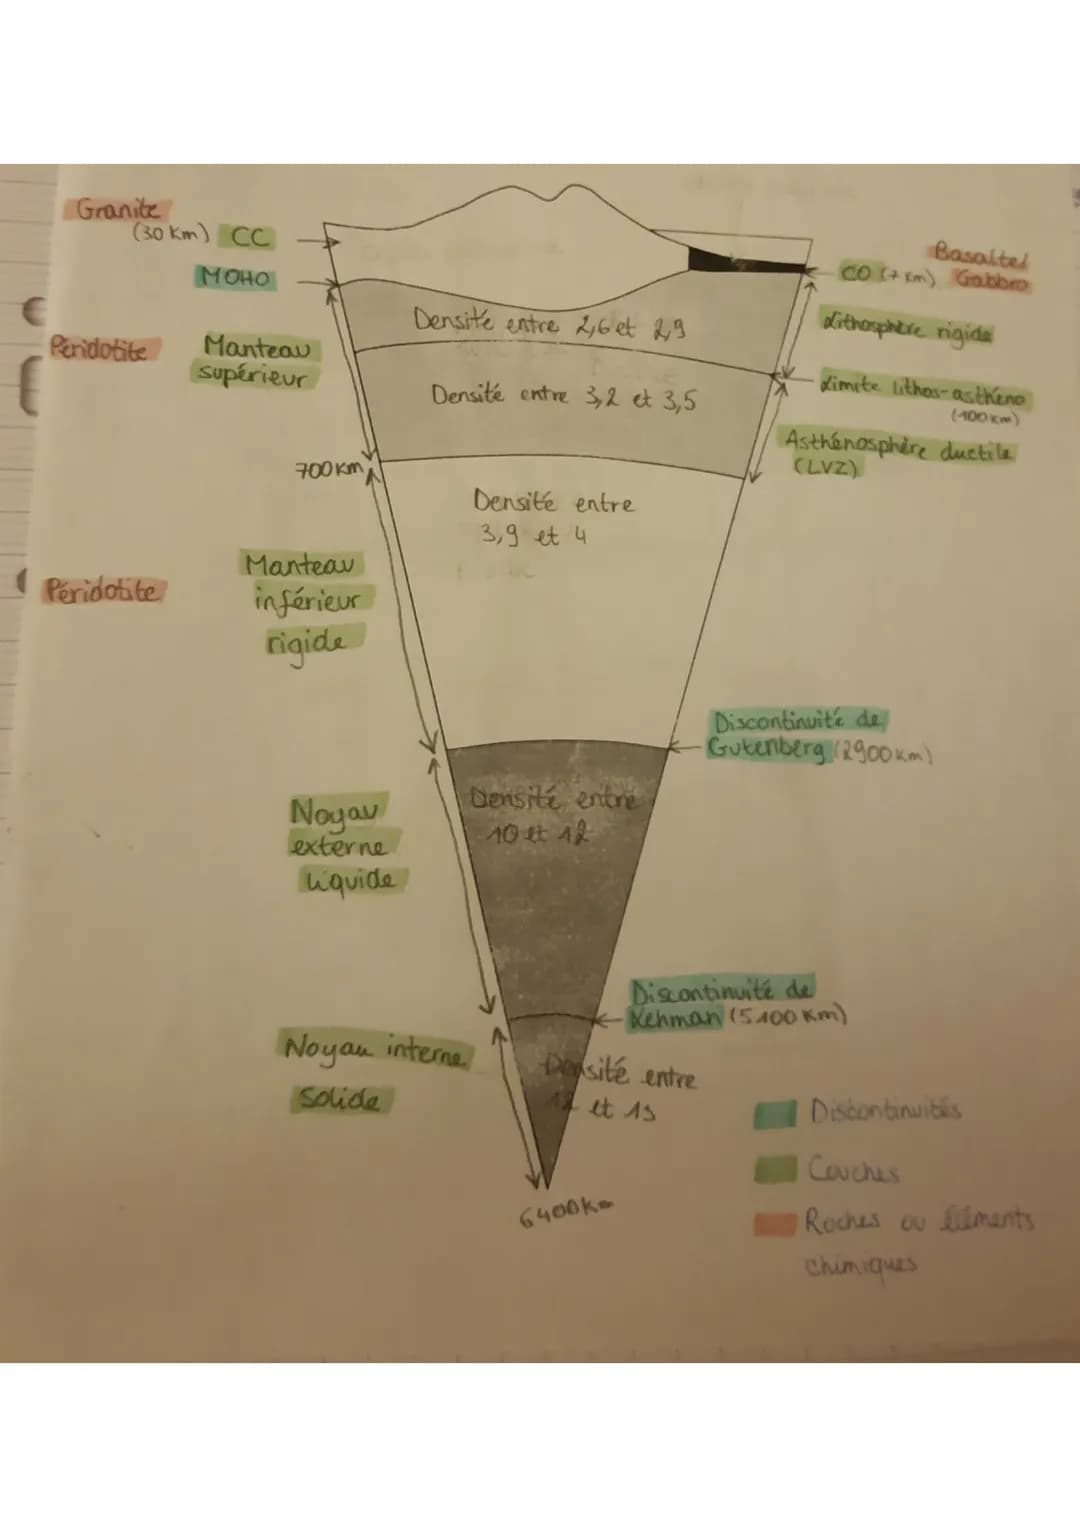 Granite
(30 Km) CC
MOHO
Basaltes
CO (7 Km) Gabbro
Densité entre 2,6 et 2,9
Lithosphère rigide
Péridotite
Manteau
supérieur
Densité entre 3,2 et 3,5
Limite lithos-asthéno
(100 km)
Asthénosphère ductile
(LVZ)
700 Km
Densité entre
3,9 et 4
Péridotite
Manteau
inférieur
rigide
Discontinuité de
Gutenberg (2900 Km)
Noyau
externe
liquide
Densité entre
10 et 12
Discontinuité de
Lehman (5100 Km)
Noyau interne
Solide
Densité entre
12 et 13
6400 Km
Discontinuités
Couches
Roches ou éléments
chimiques